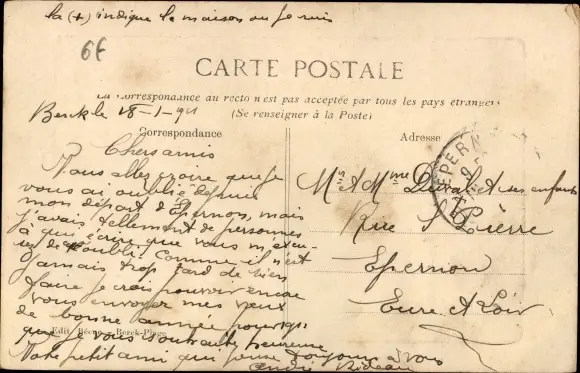 la (+) indique la maison ou je suis
6f
CARTE POSTALE
La Correspondance au recto n'est pas acceptée par tous les pays étrangers
(Se renseigner à la Poste)
Berck le 28-1-
Correspondance
Chers amis
Vous allez croire que je
vous ai oublié depuis
mon départ d'Epernon, mais
j'avais tellement de personnes
à qui écrire que vous m'excu-
de l'oubli. Comme il n'est
jamais trop tard de bien
faire je crois pouvoir encore
vous envoyer mes vœux
de bonne année pour
que je vous souhaite heureuse
Edit. Bécan - Berck-Plage
Votre petit ami qui pense toujours à vous
André
Adresse
EPERN
Mrs & Mme et ses enfants
Rue St Pierre
Epernon
Eure & Loir